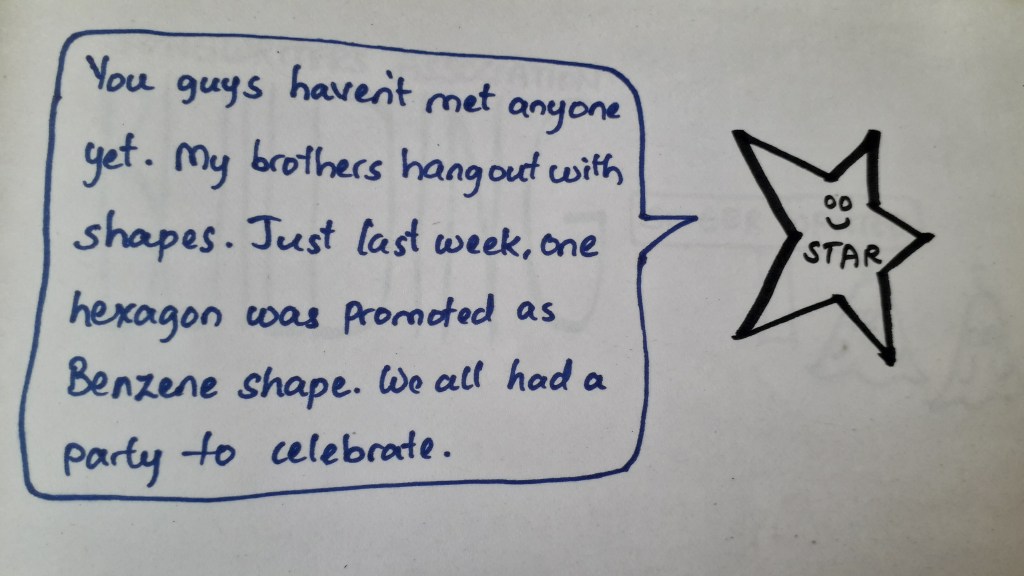 You guys haven't met anyone
yet. My brothers hangout with
shapes. Just last week, one
hexagon was promoted as
Benzene shape. We all had a
party to celebrate.
STAR